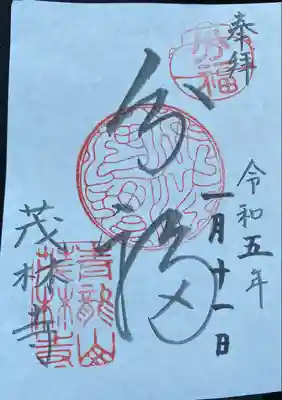 奉拝
令和五年
一月十一日
分福
茂林寺
青龍山
茂林寺